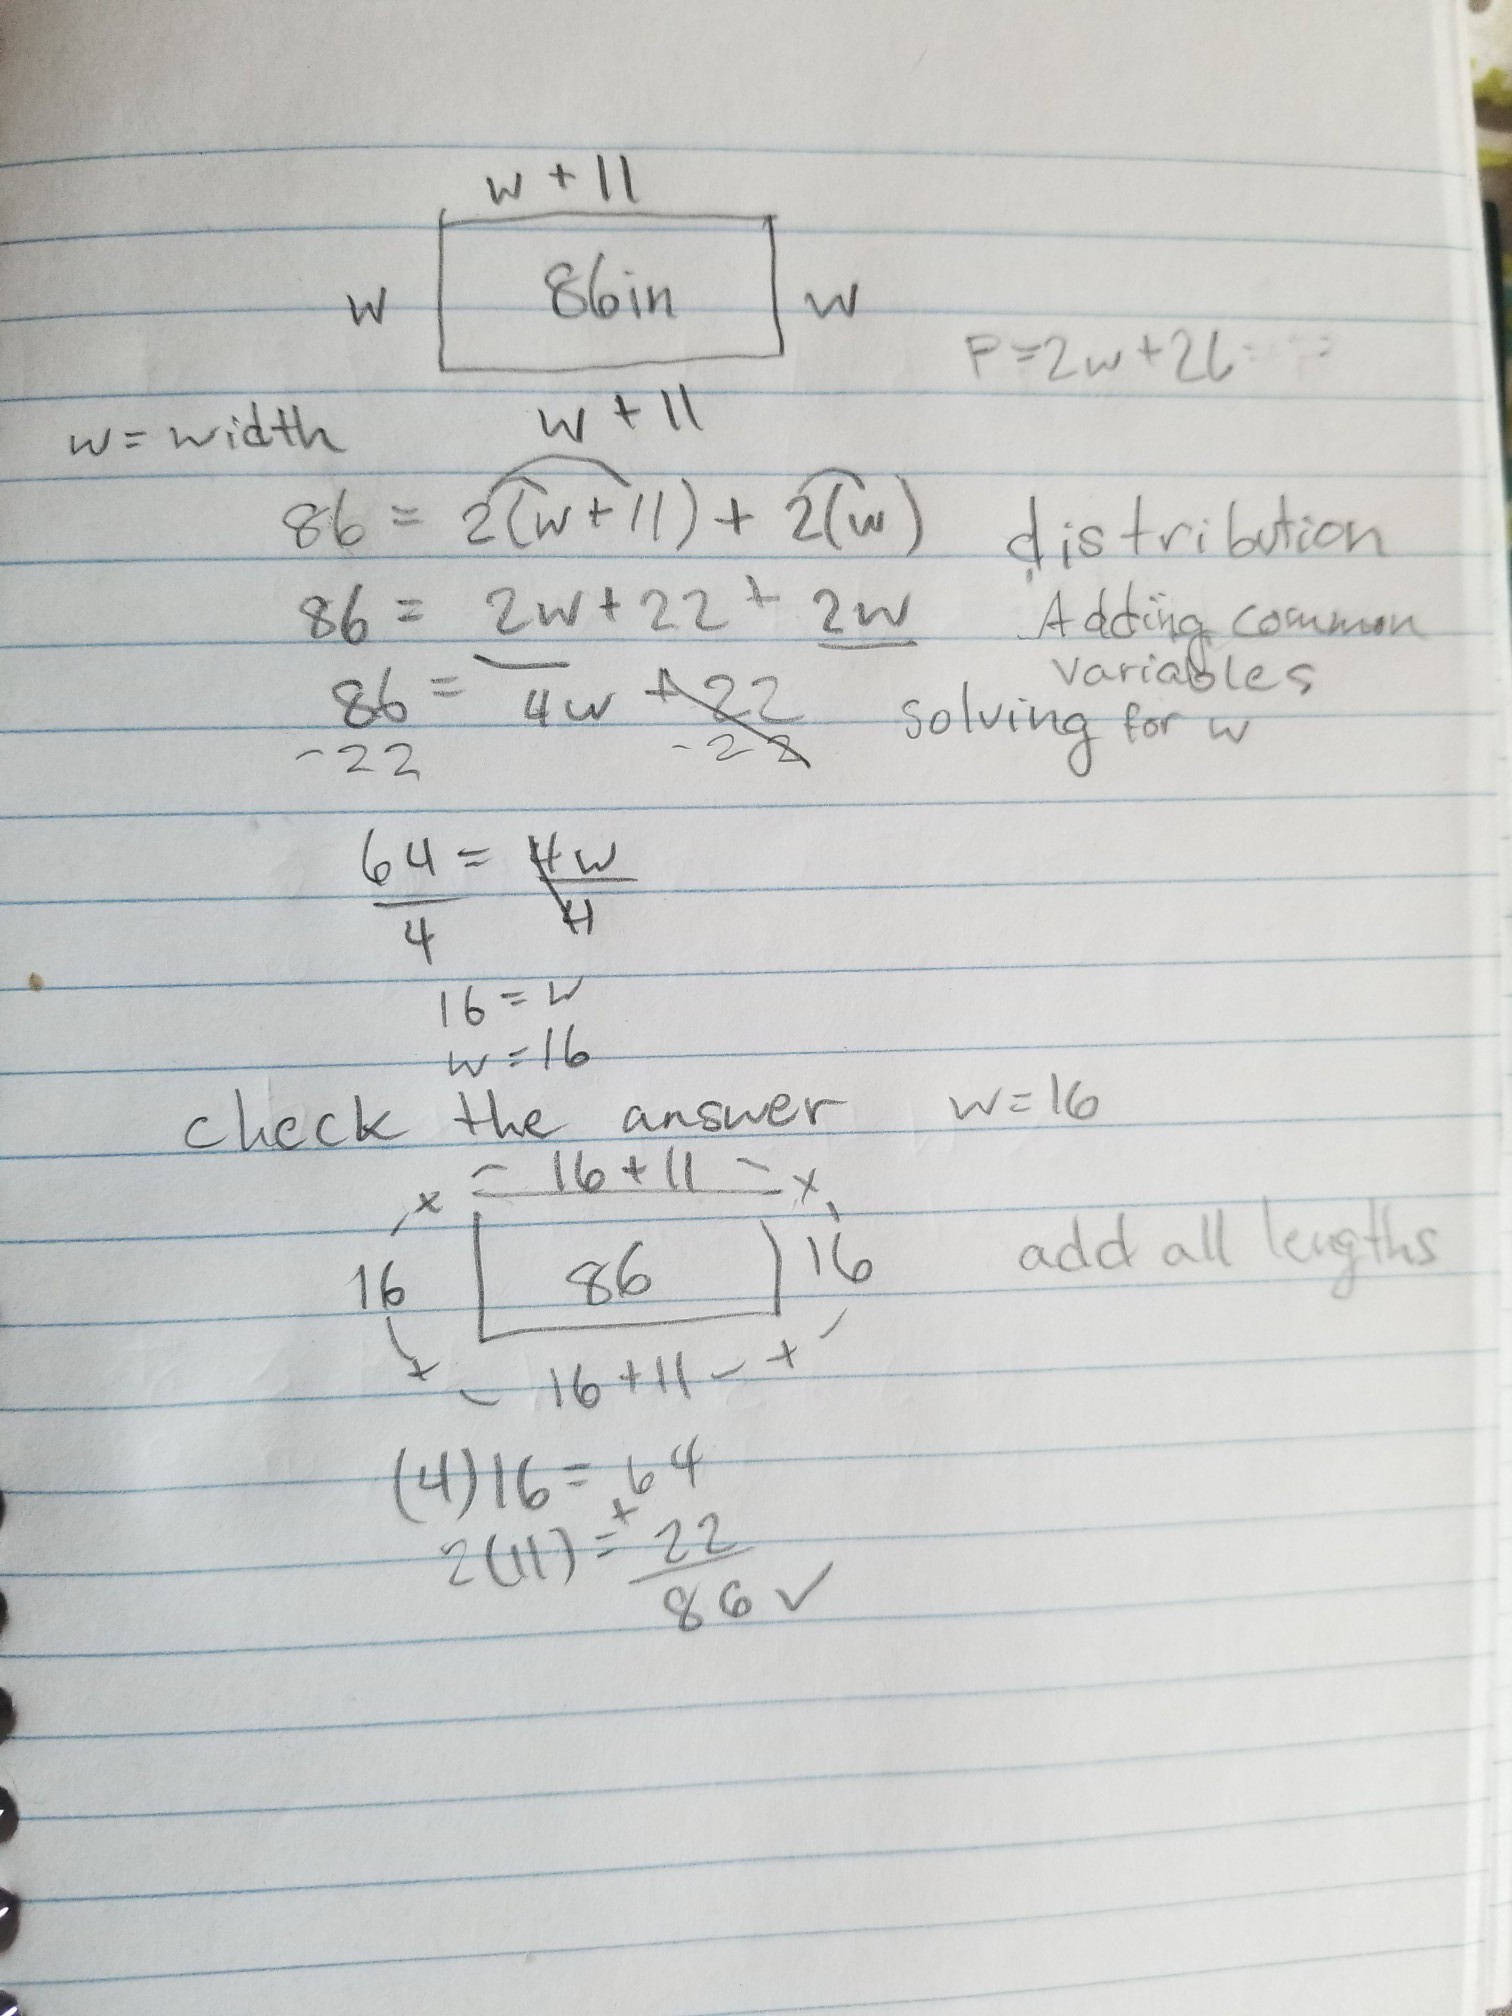 w + 11
w 86in w
P = 2w + 2l
w + 11
w = width
86 = 2(w + 11) + 2(w) distribution
86 = 2w + 22 + 2w Adding common
variables
86 = 4w + 22 solving for w
-22 -22
64 = 4w
4 4
16 = w
w = 16
check the answer w = 16
+ - 16 + 11 - +
16 86 16 add all lengths
+ - 16 + 11 - +
(4)16 = 64
2(11) = + 22
86 ✓